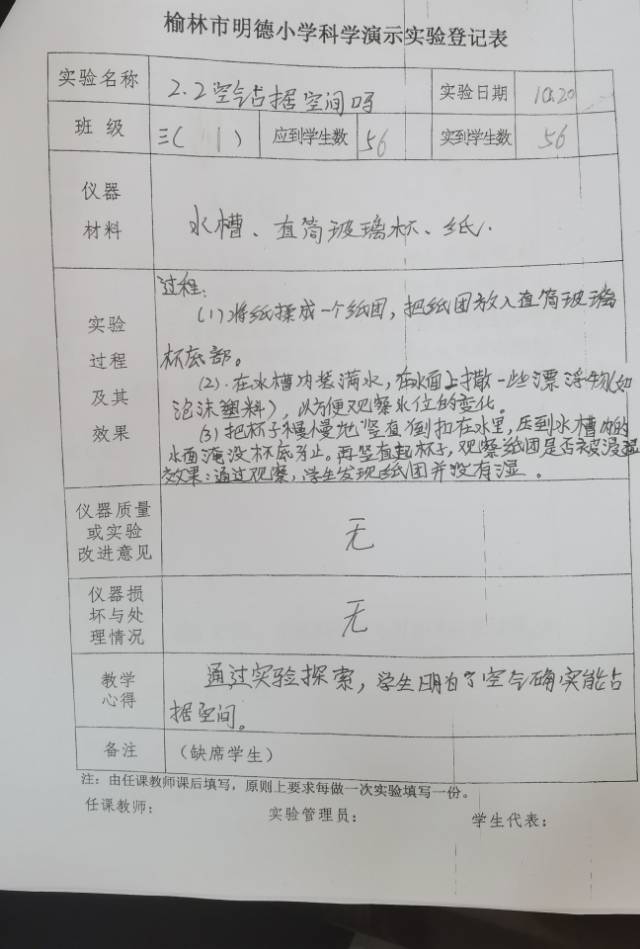 榆林市明德小学科学演示实验登记表
实验名称 2.2空气占据空间吗 实验日期 10.20
班级 三( 1 ) 应到学生数 56 实到学生数 56
仪器
材料
水槽、直筒玻璃杯、纸.
实验
过程
及其
效果
过程:
(1)将纸揉成一个纸团,把纸团放入直筒玻璃
杯底部。
(2).在水槽内装满水,在水面上撒一些漂浮物(如
泡沫塑料),以方便观察水位的变化。
(3)把杯子慢慢地竖直倒扣在水里,压到水槽内的
水面淹没杯底为止。再竖直起杯子,观察纸团是否被浸湿
效果:通过观察,学生发现纸团并没有湿.
仪器质量
或实验
改进意见
无
仪器损
坏与处
理情况
无
教学
心得
通过实验探索,学生明白了空气确实能占
据空间。
备注 (缺席学生)
注:由任课教师课后填写,原则上要求每做一次实验填写一份。
任课教师: 实验管理员: 学生代表: